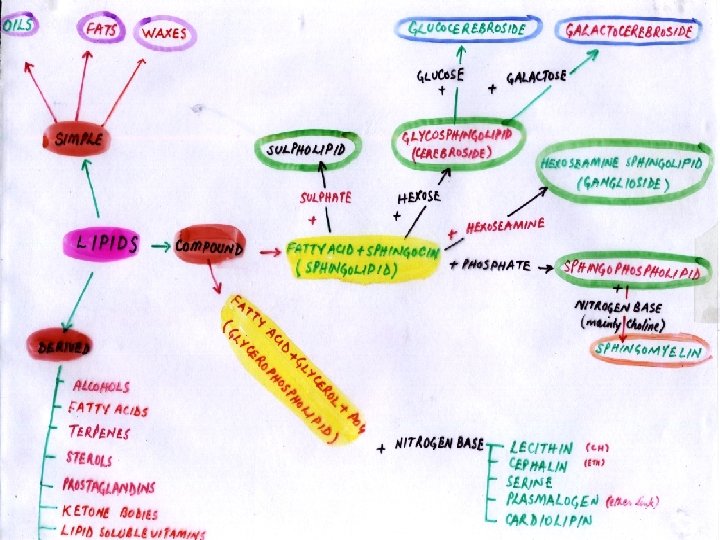 OILS
FATS
WAXES
GLUCOCEREBROSIDE
GALACTOCEREBROSIDE
GLUCOSE
+
+ GALACTOSE
SIMPLE
SULPHOLIPID
GLYCOSPHINGOLIPID
(CEREBROSIDE)
HEXOSEAMINE SPHINGOLIPID
(GANGLIOSIDE)
SULPHATE
+
HEXOSE
+
+ HEXOSEAMINE
LIPIDS
COMPOUND
FATTY ACID + SPHINGOCIN
(SPHINGOLIPID)
+ PHOSPHATE
SPHINGOPHOSPHOLIPID
+
NITROGEN BASE
(mainly Choline)
SPHINGOMYELIN
FATTY ACID + GLYCEROL + PO4
(GLYCEROPHOSPHOLIPID)
DERIVED
ALCOHOLS
FATTY ACIDS
TERPENES
STEROLS
PROSTAGLANDINS
KETONE BODIES
LIPID SOLUBLE VITAMINS
+ NITROGEN BASE
LECITHIN (CH)
CEPHALIN (ETH)
SERINE
PLASMALOGEN (ether link)
CARDIOLIPIN